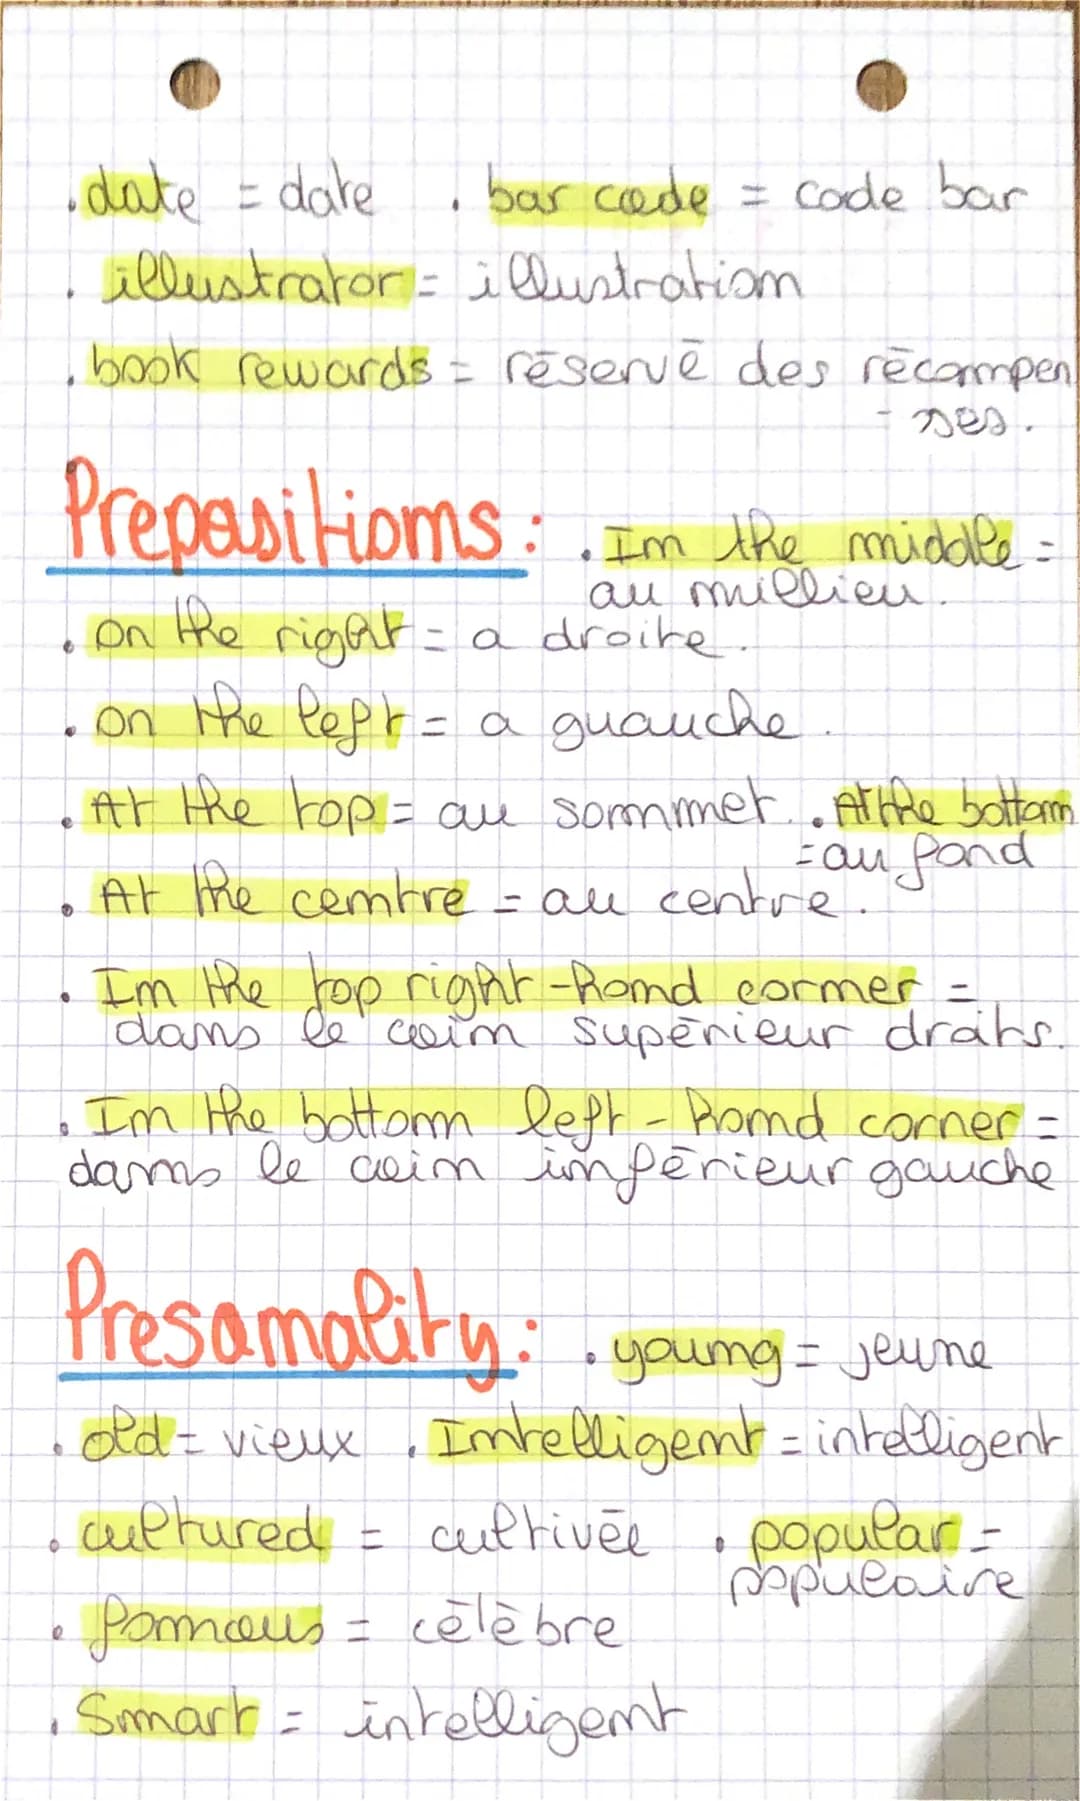 . date = date . bar code = code bar
. illustrator = illustration
. book rewards = réservé des récompen
- ses.
Prepositions : . In the middle =
au millieu.
. on the right = a droite.
. on the left = a guauche.
. At the top = au sommet. . At the bottom
= au fond
. At the centre = au centre.
. In the top right-hand corner =
dans le coin supérieur droits.
. In the bottom left-hand corner =
dans le coin inférieur gauche
Presonality : . young = jeune
. old = vieux . Intelligent = intelligent
. cultured = cultivée . popular =
populaire
. fammous = célèbre
. Smart = intelligent